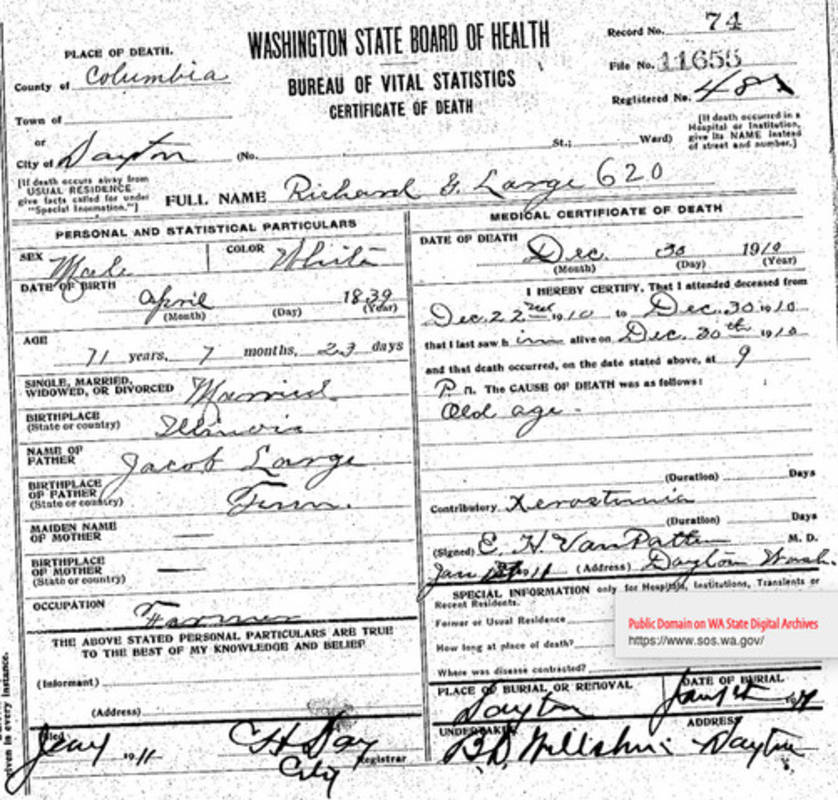 WASHINGTON STATE BOARD OF HEALTH
BUREAU OF VITAL STATISTICS
CERTIFICATE OF DEATH
Record No. 74
File No. 11655
Registered No.
PLACE OF DEATH.
County of Columbia
Town of
or
City of Dayton (No. St.; Ward)
[If death occurred in a
Hospital or Institution,
give its NAME instead
of street and number.]
[If death occurs away from
USUAL RESIDENCE
give facts called for under
"Special Information."]
FULL NAME Richard G. Large 620
PERSONAL AND STATISTICAL PARTICULARS
SEX Male COLOR White
DATE OF BIRTH
April 1839
(Month) (Day) (Year)
AGE
71 years, 7 months, 23 days
SINGLE, MARRIED,
WIDOWED, OR DIVORCED Married
BIRTHPLACE
(State or country) Illinois
NAME OF
FATHER Jacob Large
BIRTHPLACE
OF FATHER
(State or country) Tenn.
MAIDEN NAME
OF MOTHER —
BIRTHPLACE
OF MOTHER —
(State or country)
OCCUPATION Farmer
THE ABOVE STATED PERSONAL PARTICULARS ARE TRUE
TO THE BEST OF MY KNOWLEDGE AND BELIEF
(Informant)
(Address)
Filed Jany 1911 C H Day
Registrar
City
MEDICAL CERTIFICATE OF DEATH
DATE OF DEATH
Dec. 30 1910
(Month) (Day) (Year)
I HEREBY CERTIFY, That I attended deceased from
Dec. 22nd 1910 to Dec. 30 1910
that I last saw him alive on Dec. 30th 1910
and that death occurred, on the date stated above, at 9
P. M. The CAUSE OF DEATH was as follows:
Old age -
(Duration) Days
Contributory Xerostomia
(Duration) Days
(Signed) E. H. Van Patten M. D.
Jan 1911 (Address) Dayton Wash.
SPECIAL INFORMATION only for Hospitals, Institutions, Transients or
Recent Residents.
Former or Usual Residence
How long at place of death?
Where was disease contracted?
Public Domain on WA State Digital Archives
https://www.sos.wa.gov/
PLACE OF BURIAL OR REMOVAL DATE OF BURIAL
Dayton
UNDERTAKER ADDRESS
Dayton
given in every instance.